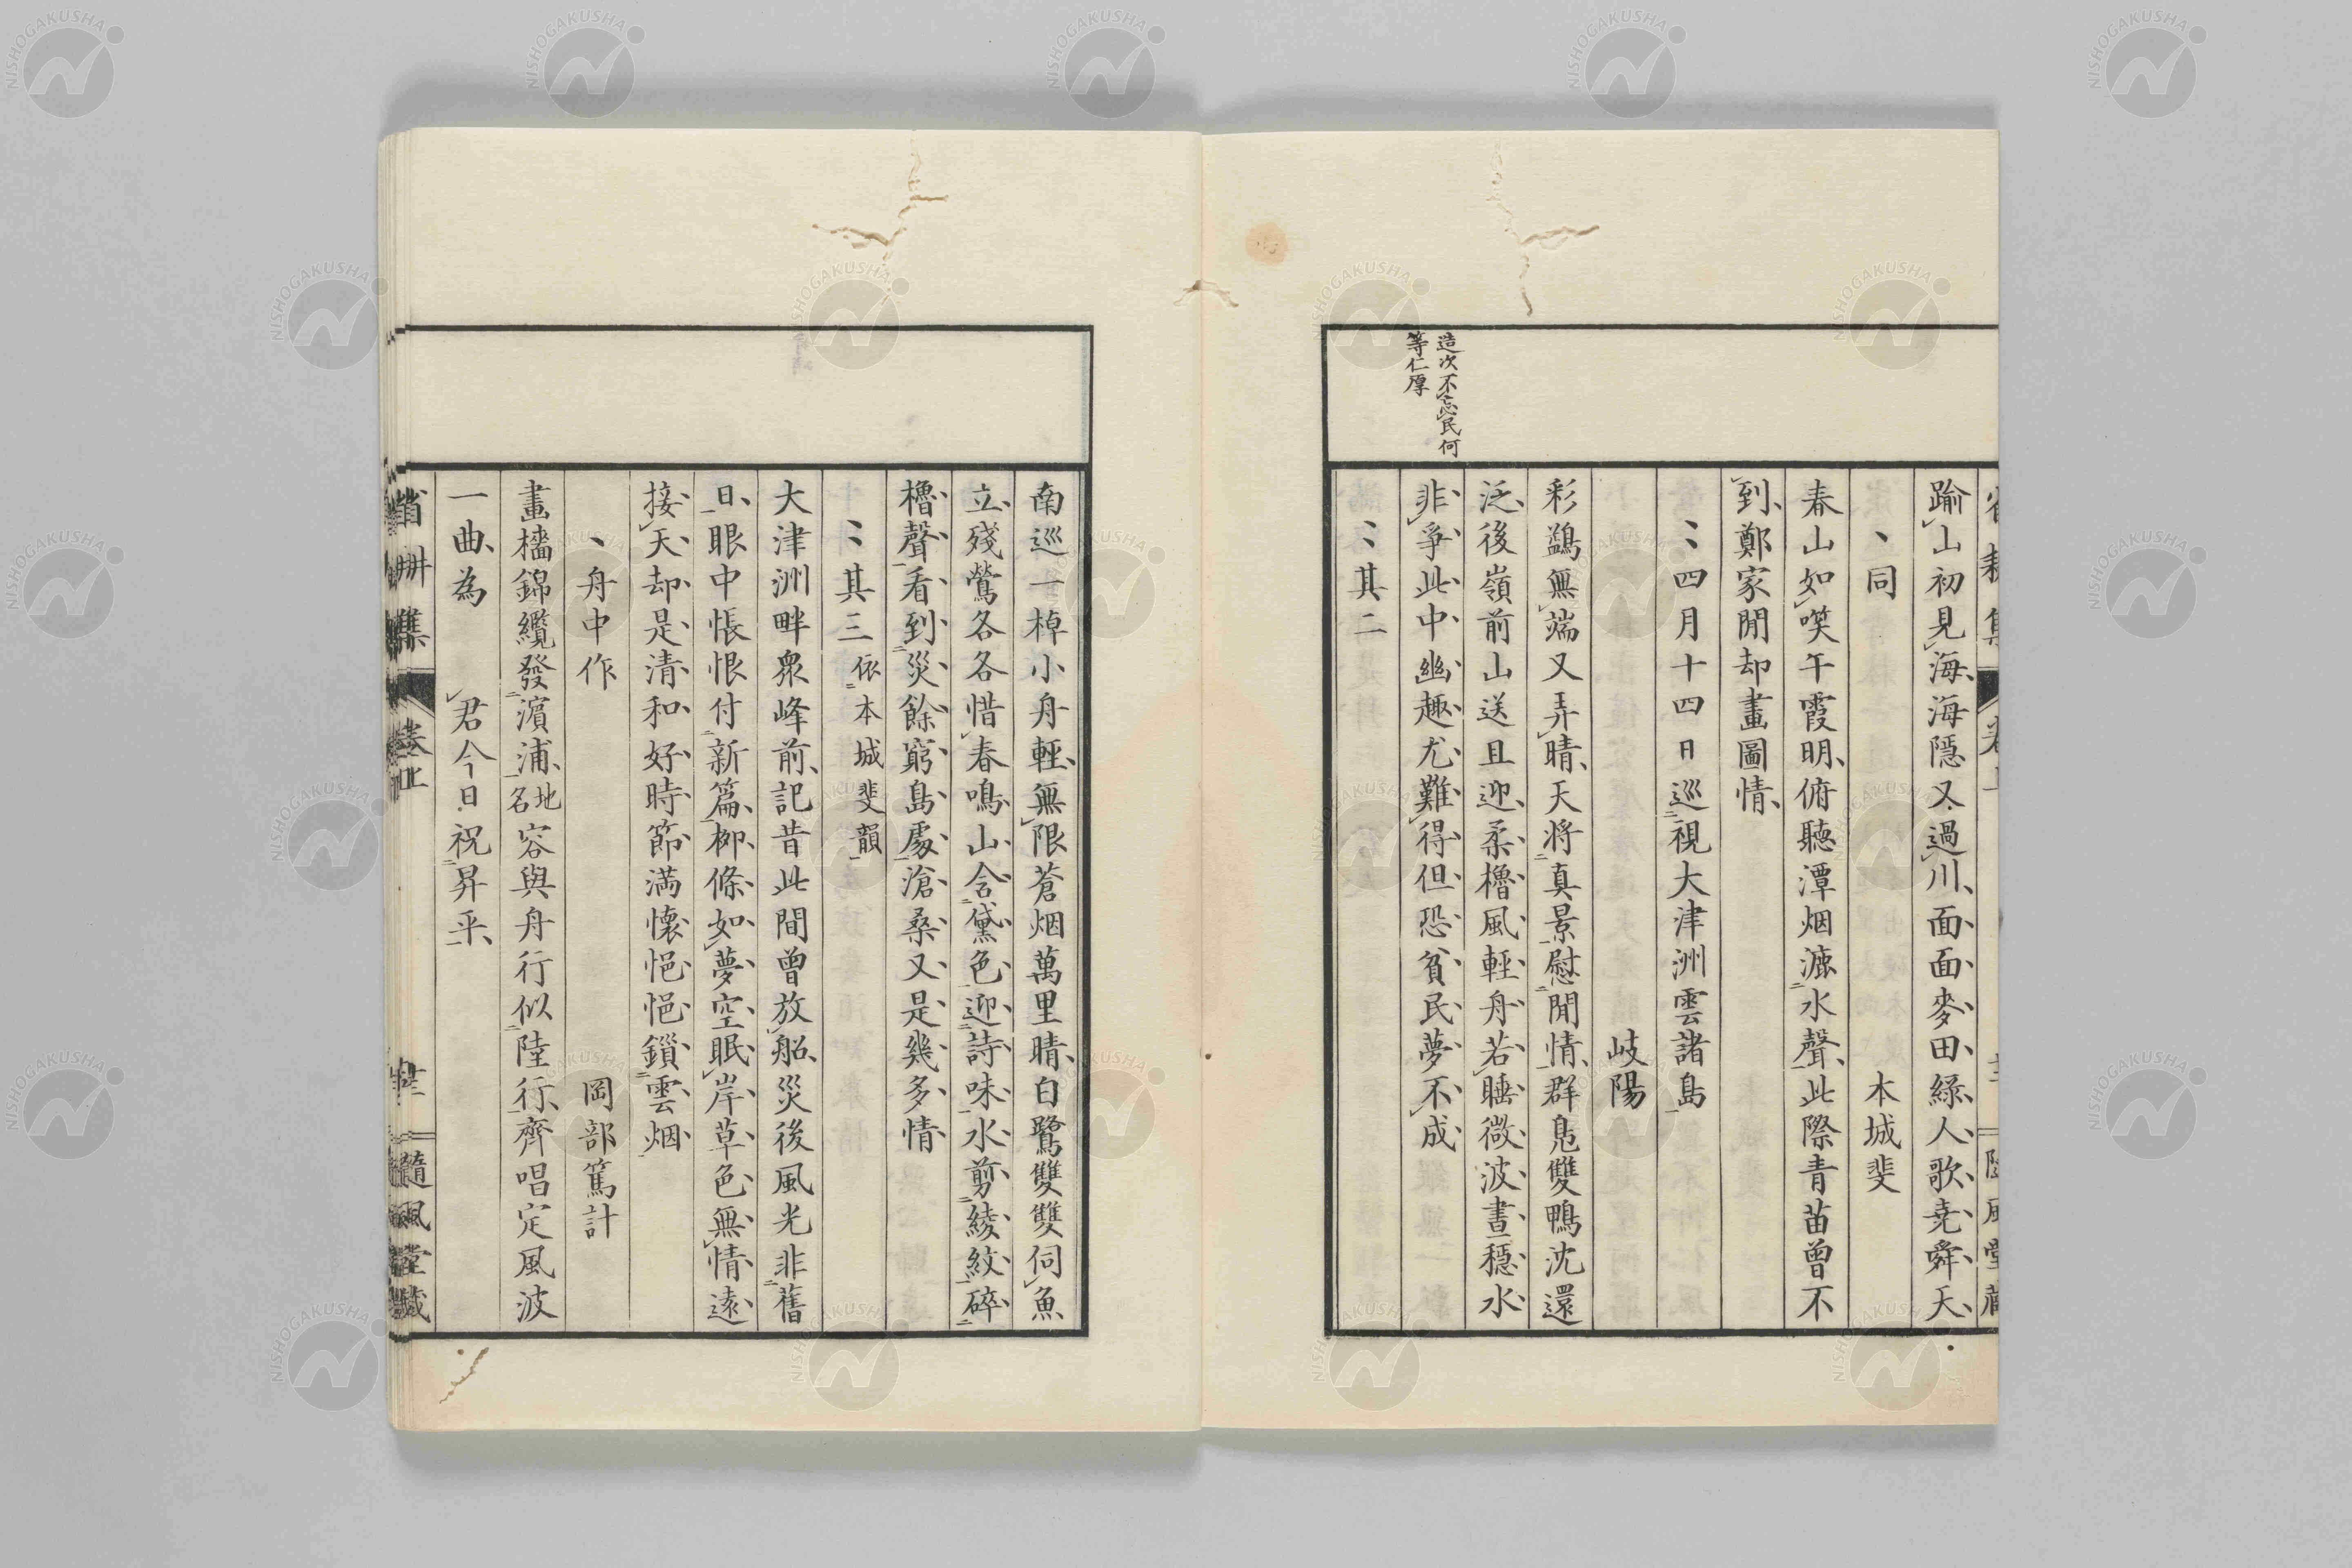 踰山初見海海隱又過川面面麥田緑人歌堯舜天
同 本城斐
春山如笑午霞明俯聽潭烟漉水聲此際青苗曾不
到鄭家閒却畫圖情
四月十四日巡視大津洲雲諸島
岐陽
彩鷁無端又弄晴天将真景慰閒情群鳧雙鴨沈還
泛後嶺前山送且迎柔櫓風輕舟若睡微波晝穩水
非爭此中幽趣尤難得但恐貧民夢不成
造次不忘民何
等仁厚
其二
南巡一棹小舟輕無限蒼烟萬里晴白鷺雙雙伺魚
立殘鶯各各惜春鳴山含黛色迎詩味水剪綾紋碎
櫓聲看到災餘窮島處滄桑又是幾多情
其三 依本城斐韻
大津洲畔衆峰前記昔此間曾放船災後風光非舊
日眼中悵恨付新篇柳條如夢空眠岸草色無情遠
接天却是清和好時節満懐悒悒鎖雲烟
舟中作 岡部篤計
畫檣錦纜發濵浦地名容與舟行似陸行齊唱定風波
一曲為 君今日祝昇平
省耕集 卷上 隨風堂藏